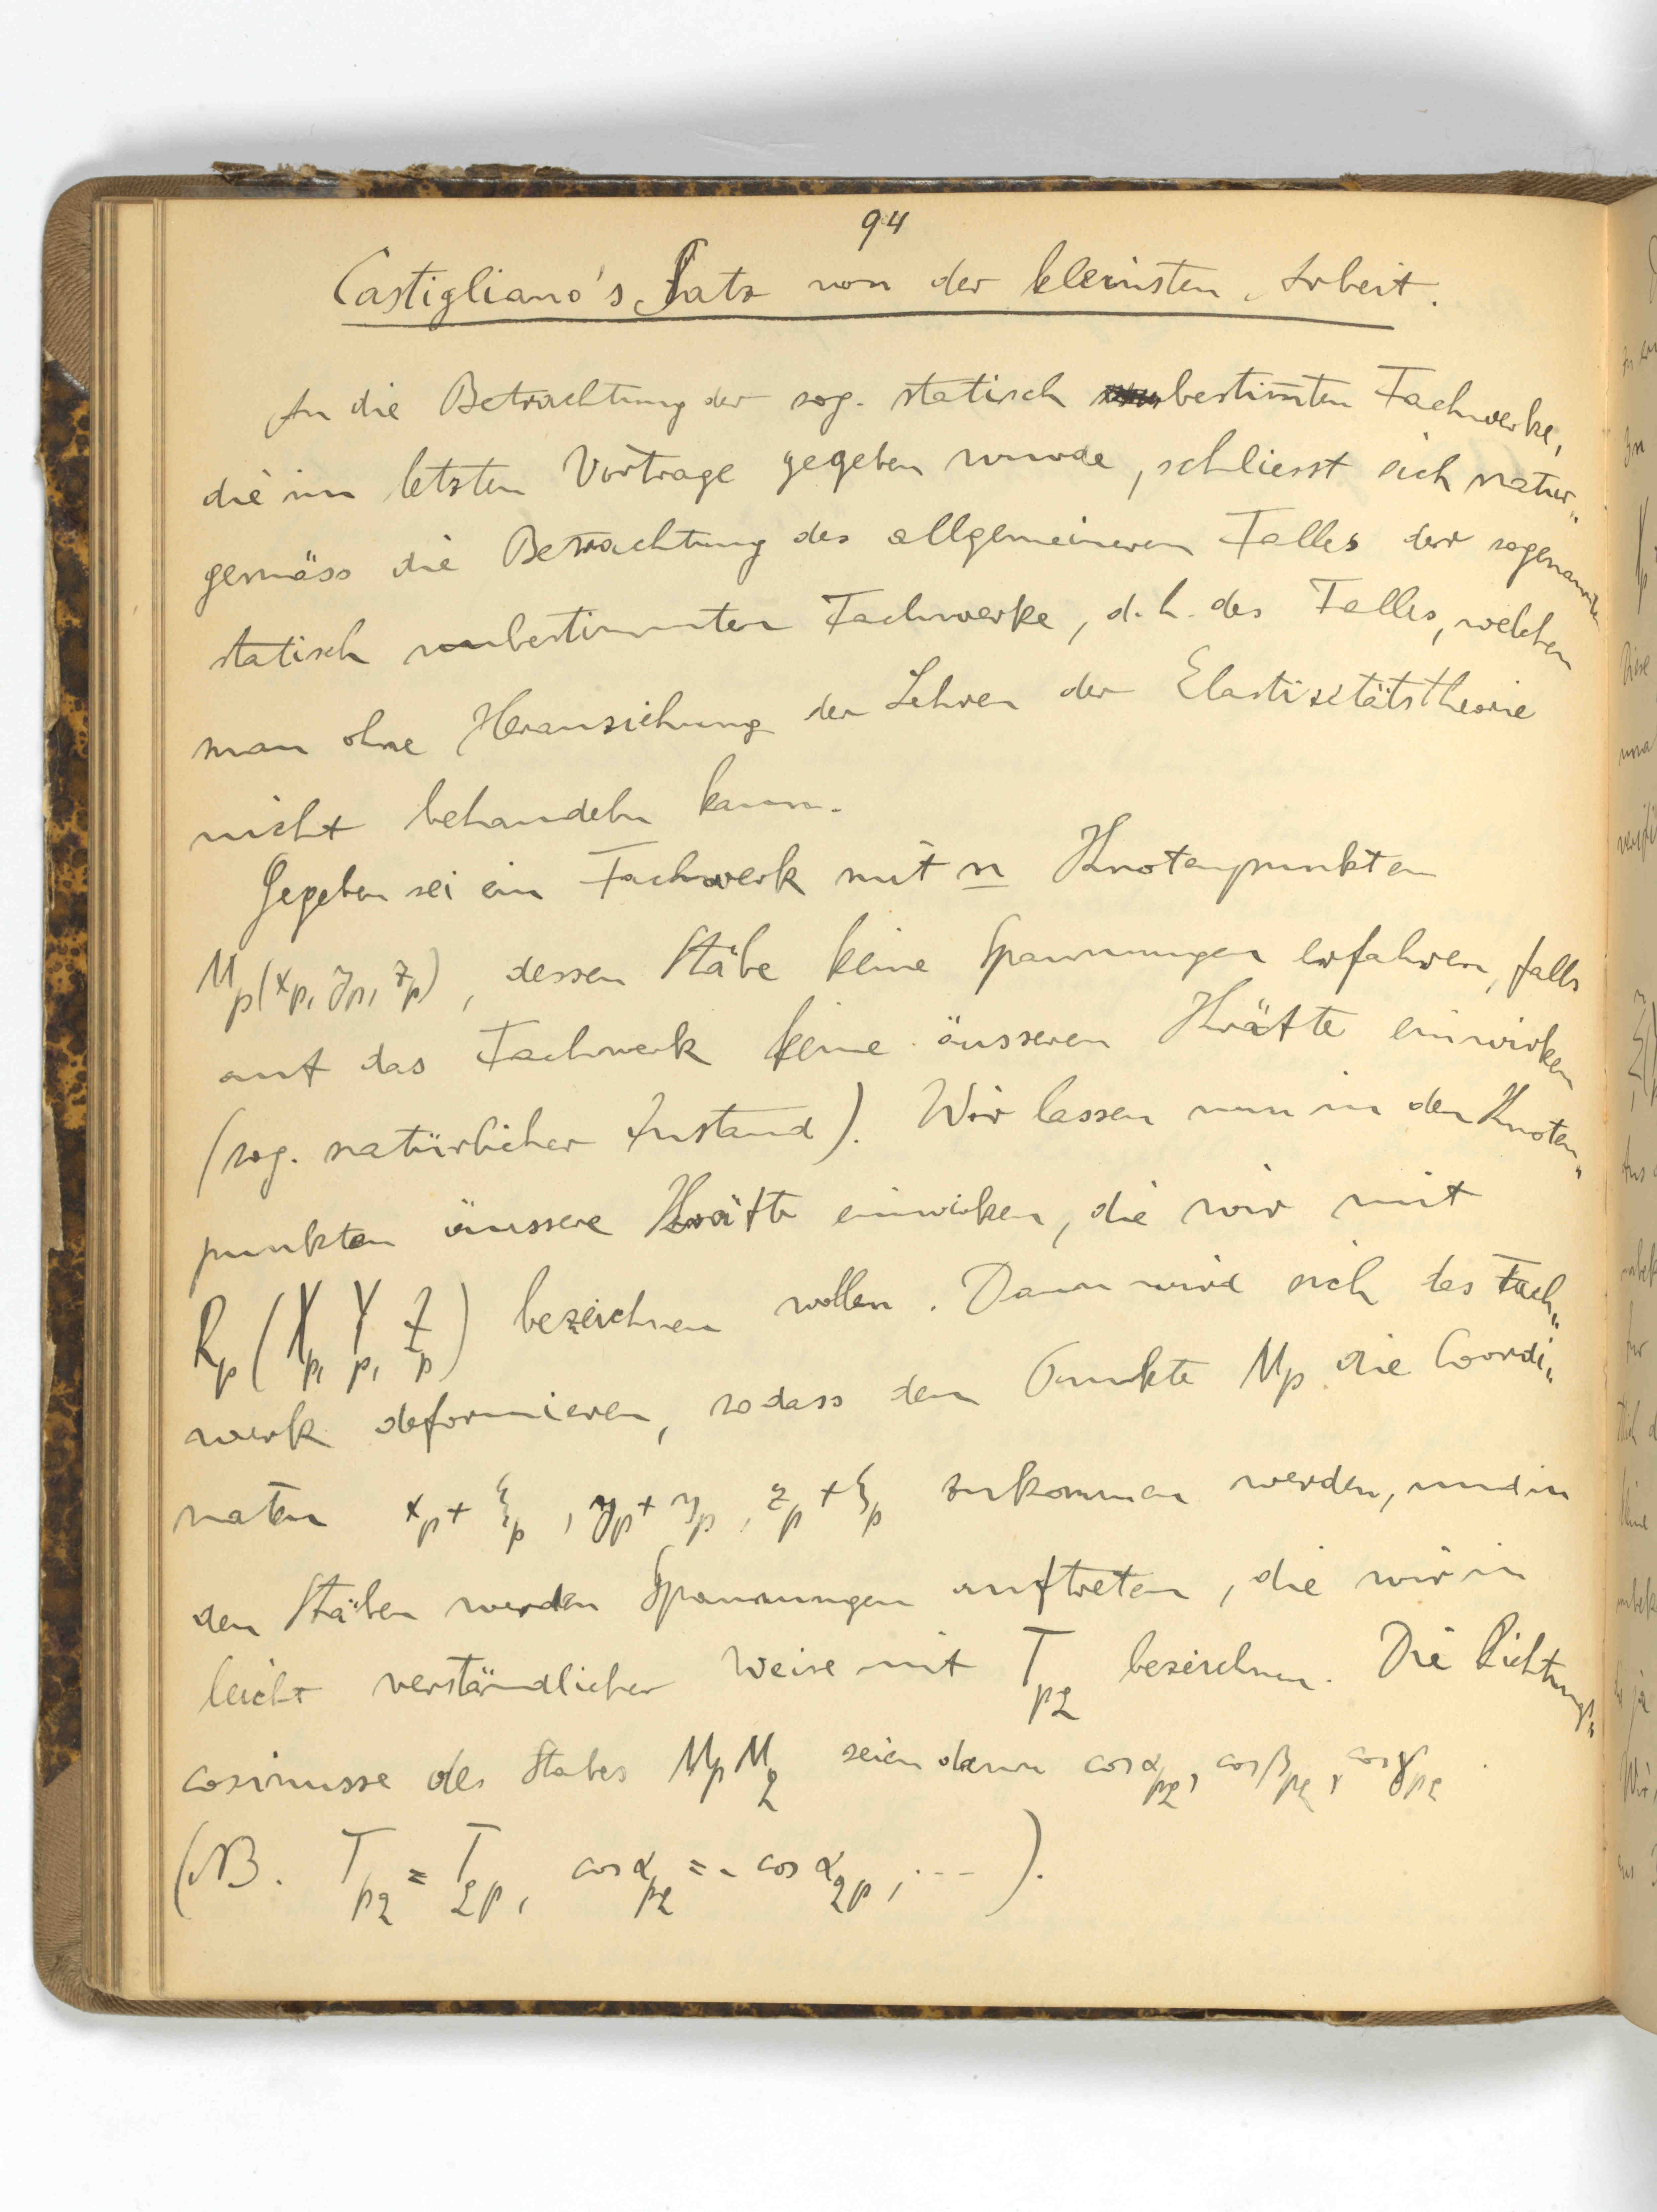 94
Castigliano's Satz von der kleinsten Arbeit.
An die Betrachtung der sog. statisch bestimmten Fachwerke,
die im letzten Vortrage gegeben wurde, schliesst sich natur„
gemäss die Betrachtung des allgemeineren Falles der sogenannten
statisch unbestimmten Fachwerke, d. h. des Falles, welchen
man ohne Heranziehung der Lehren der Elastizitätstheorie
nicht behandeln kann.
Gegeben sei ein Fachwerk mit n Knotenpunkten
M_p(x_p, y_p, z_p), dessen Stäbe keine Spannungen erfahren, falls
auf das Fachwerk keine äusseren Kräfte einwirken
(sog. natürlicher Zustand). Wir lassen nun in den Knoten„
punkten äussere Kräfte einwirken, die wir mit
R_p (X_p, Y_p, Z_p) bezeichnen wollen. Dann wird sich das Fach„
werk deformieren, sodass dem Punkte M_p die Coordi„
naten x_p + ξ_p, y_p + η_p, z_p + ζ_p zukommen werden, und in
den Stäben werden Spannungen auftreten, die wir in
leicht verständlicher Weise mit T_pq bezeichnen. Die Richtungs„
cosinusse des Stabes M_p M_q seien dann cos α_pq, cos β_pq, cos γ_pq.
(NB. T_pq = T_qp, cos α_pq = - cos α_qp, ---).